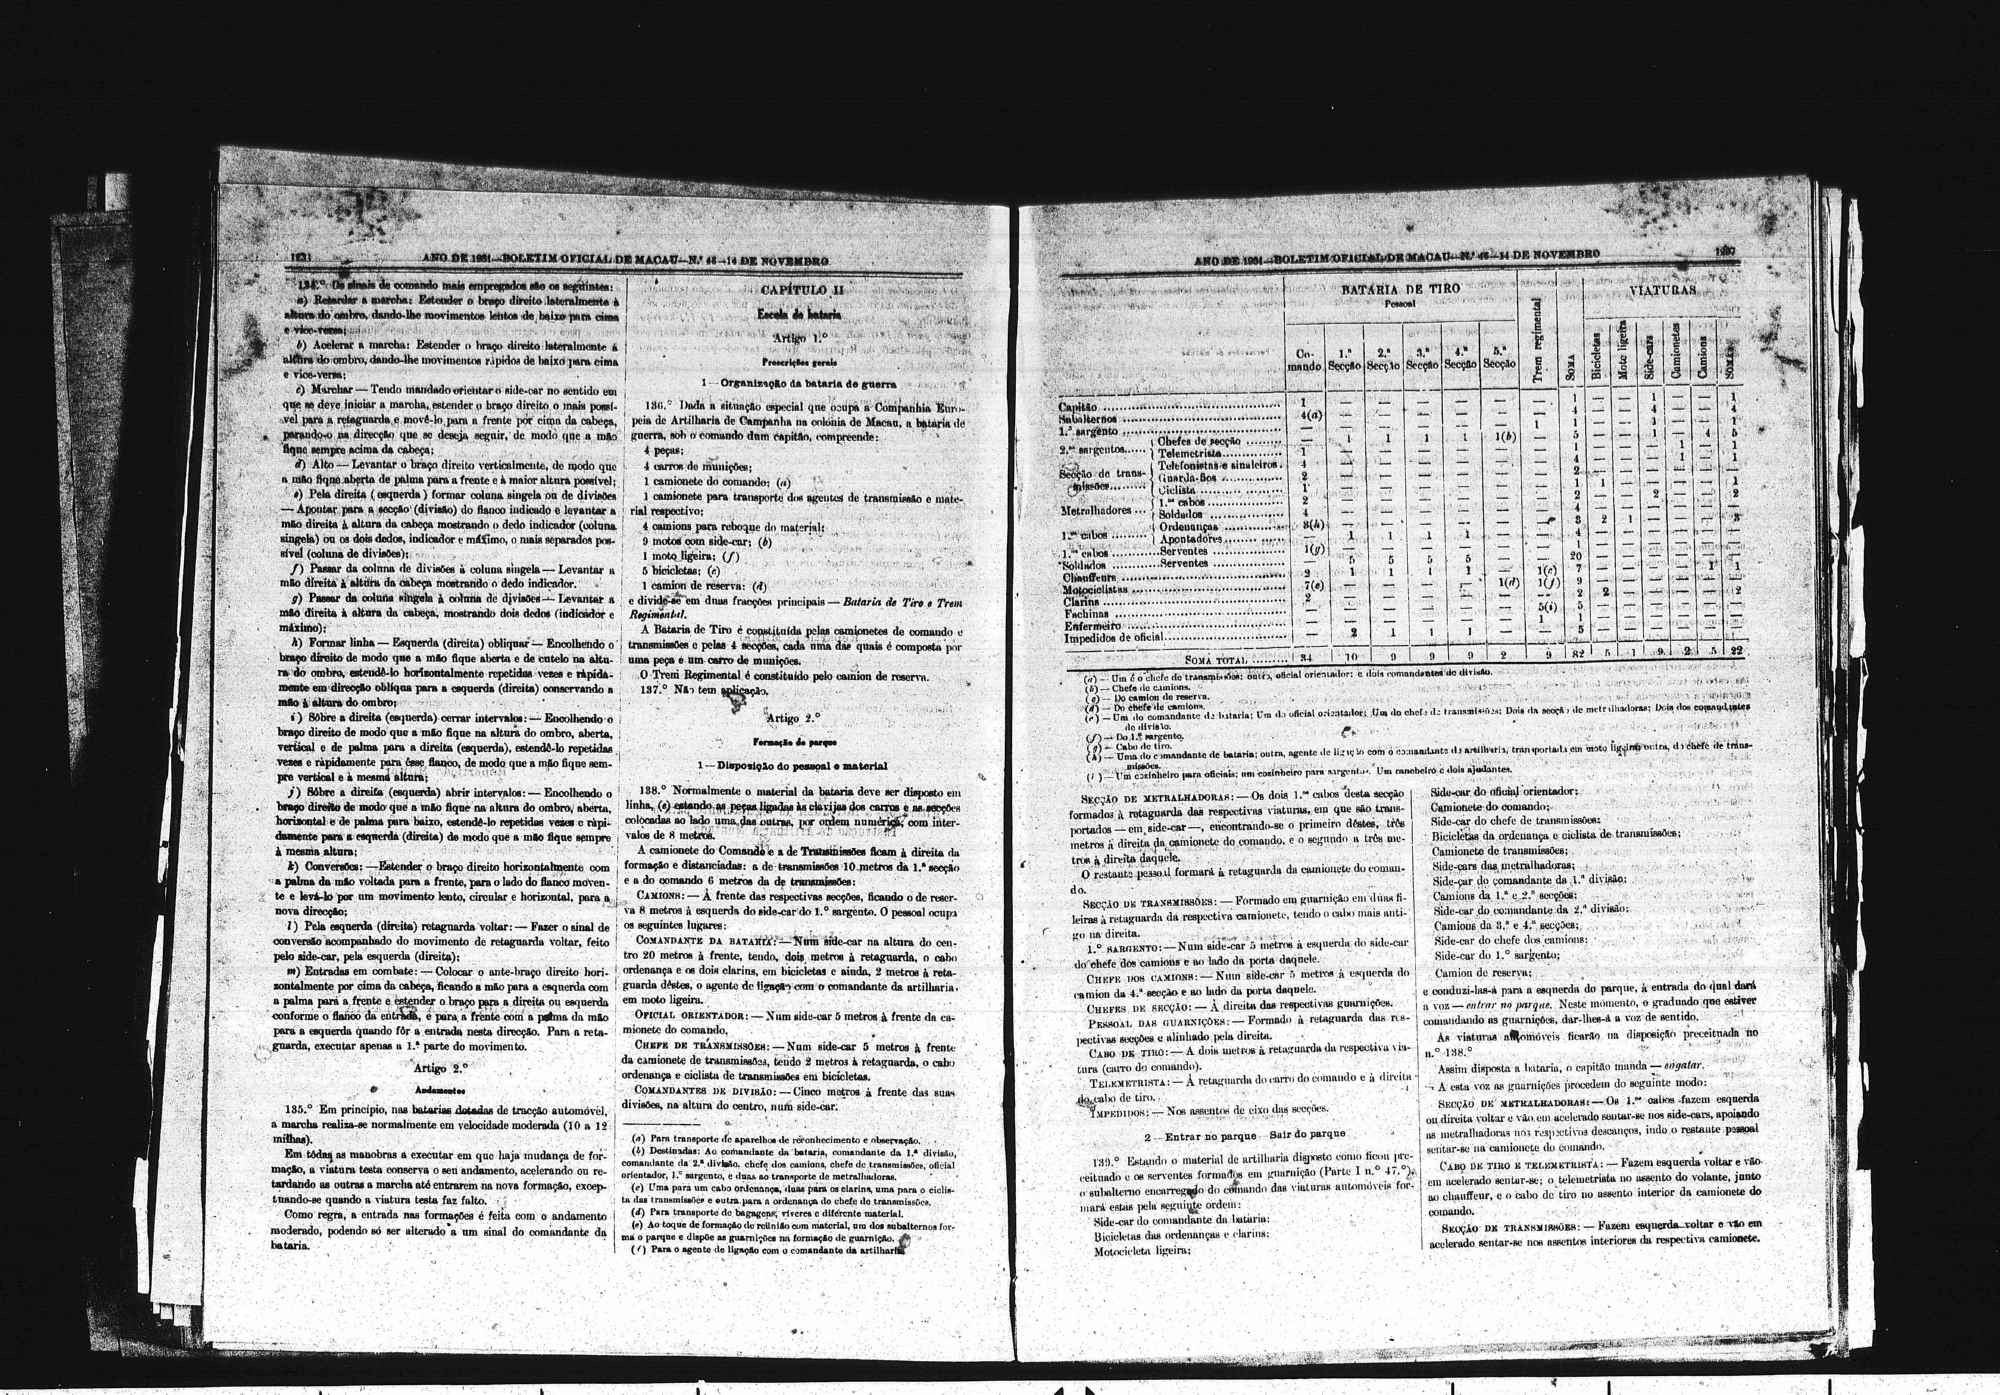 ANO DE 1931—BOLETIM OFICIAL DE MACAU—N.º 46—14 DE NOVEMBRO
134.º Os sinais de comando mais empregados são os seguintes:
a) Retardar a marcha: Estender o braço direito lateralmente à
altura do ombro, dando-lhe movimentos lentos de baixo para cima
e vice-versa;
b) Acelerar a marcha: Estender o braço direito lateralmente á
altura do ombro, dando-lhe movimentos rápidos de baixo para cima
e vice-versa;
c) Marchar — Tendo mandado orientar o side-car no sentido em
que se deve iniciar a marcha, estender o braço direito o mais possí-
vel para a retaguarda e movê-lo para a frente por cima da cabeça,
parando-o na direcção que se deseja seguir, de modo que a mão
fique sempre acima da cabeça;
d) Alto — Levantar o braço direito verticalmente, de modo que
a mão fique aberta de palma para a frente e à maior altura possível;
e) Pela direita (esquerda) formar coluna singela ou de divisões
— Apontar para a secção (divisão) do flanco indicado e levantar a
mão direita à altura da cabeça mostrando o dedo indicador (coluna
singela) ou os dois dedos, indicador e máximo, o mais separados pos-
sível (coluna de divisões);
f) Passar da coluna de divisões à coluna singela — Levantar a
mão direita à altura da cabeça mostrando o dedo indicador.
g) Passar da coluna singela à coluna de divisões — Levantar a
mão direita à altura da cabeça, mostrando dois dedos (indicador e
máximo);
h) Formar linha — Esquerda (direita) obliquar — Encolhendo o
braço direito de modo que a mão fique aberta e de cutelo na altu-
ra do ombro, estendê-lo horizontalmente repetidas vezes e rápida-
mente em direcção oblíqua para a esquerda (direita) conservando a
mão à altura do ombro;
i) Sôbre a direita (esquerda) cerrar intervalos: — Encolhendo o
braço direito de modo que a mão fique na altura do ombro, aberta,
vertical e de palma para a direita (esquerda), estendê-lo repetidas
vezes e ràpidamente para êsse flanco, de modo que a mão fique sem-
pre vertical e à mesma altura;
j) Sôbre a direita (esquerda) abrir intervalos: — Encolhendo o
braço direito de modo que a mão fique na altura do ombro, aberta,
horizontal e de palma para baixo, estendê-lo repetidas vezes e ràpi-
damente para a esquerda (direita) de modo que a mão fique sempre
à mesma altura;
k) Conversões: — Estender o braço direito horizontalmente com
a palma da mão voltada para a frente, para o lado do flanco moven-
te e levá-lo por um movimento lento, circular e horizontal, para a
nova direcção;
l) Pela esquerda (direita) retaguarda voltar: — Fazer o sinal de
conversão acompanhado do movimento de retaguarda voltar, feito
pelo side-car, pela esquerda (direita);
m) Entradas em combate: — Colocar o ante-braço direito hori-
zontalmente por cima da cabeça, ficando a mão para a esquerda com
a palma para a frente e estender o braço para a direita ou esquerda
conforme o flanco da entrada, e para a frente com a palma da mão
para a esquerda quando fôr a entrada nesta direcção. Para a reta-
guarda, executar apenas a 1.ª parte do movimento.
Artigo 2.º
Andamentos
135.º Em princípio, nas batarias dotadas de tracção automóvel,
a marcha realiza-se normalmente em velocidade moderada (10 a 12
milhas).
Em tôdas as manobras a executar em que haja mudança de for-
mação, a viatura testa conserva o seu andamento, acelerando ou re-
tardando as outras a marcha até entrarem na nova formação, excep-
tuando-se quando a viatura testa faz falto.
Como regra, a entrada nas formações é feita com o andamento
moderado, podendo só ser alterado a um sinal do comandante da
bataria.
CAPÍTULO II
Escola de bataria
Artigo 1.º
Prescrições gerais
1 — Organização da bataria de guerra
136.º Dada a situação especial que ocupa a Companhia Euro-
peia de Artilharia de Campanha na colónia de Macau, a bataria de
guerra, sob o comando dum capitão, compreende:
4 peças;
4 carros de munições;
1 camionete do comando; (a)
1 camionete para transporte dos agentes de transmissão e mate-
rial respectivo;
4 camions para reboque do material;
9 motos com side-car; (b)
1 moto ligeira; (f)
5 bicicletas; (c)
1 camion de reserva; (d)
e divide-se em duas fracções principais — Bataria de Tiro e Trem
Regimental.
A Bataria de Tiro é constituída pelas camionetes de comando e
transmissões e pelas 4 secções, cada uma das quais é composta por
uma peça e um carro de munições.
O Trem Regimental é constituído pelo camion de reserva.
137.º Não tem aplicação.
Artigo 2.º
Formação de parque
1 — Disposição do pessoal e material
138.º Normalmente o material da bataria deve ser disposto em
linha, (e) estando as peças ligadas às clavijas dos carros e as secções
colocadas ao lado uma das outras, por ordem numérica, com inter-
valos de 8 metros.
A camionete do Comando e a de Transmissões ficam à direita da
formação e distanciadas: a de transmissões 10 metros da 1.ª secção
e a do comando 6 metros da de transmissões:
CAMIONS: — À frente das respectivas secções, ficando o de reser-
va 8 metros à esquerda do side-car do 1.º sargento. O pessoal ocupa
os seguintes lugares:
COMANDANTE DA BATARIA: — Num side-car na altura do cen-
tro 20 metros à frente, tendo, dois metros à retaguarda, o cabo
ordenança e os dois clarins, em bicicletas e ainda, 2 metros à reta-
guarda dêstes, o agente de ligação com o comandante da artilharia,
em moto ligeira.
OFICIAL ORIENTADOR: — Num side-car 5 metros à frente da ca-
mionete do comando,
CHEFE DE TRANSMISSÕES: — Num side-car 5 metros à frente
da camionete de transmissões, tendo 2 metros à retaguarda, o cabo
ordenança e ciclista de transmissões em bicicletas.
COMANDANTES DE DIVISÃO: — Cinco metros à frente das suas
divisões, na altura do centro, num side-car.
(a) Para transporte de aparelhos de reconhecimento e observação.
(b) Destinadas: Ao comandante da bataria, comandante da 1.ª divisão,
comandante da 2.ª divisão, chefe dos camions, chefe de transmissões, oficial
orientador, 1.º sargento, e duas ao transporte de metralhadoras.
(c) Uma para um cabo ordenança, duas para os clarins, uma para o ciclis-
ta das transmissões e outra para a ordenança do chefe de transmissões.
(d) Para transporte de bagagens, víveres e diferente material.
(e) Ao toque de formação de reünião com material, um dos subalternos for-
ma o parque e dispõe as guarnições na formação de guarnição.
(f) Para o agente de ligação com o comandante da artilharia.
ANO DE 1931—BOLETIM OFICIAL DE MACAU—N.º 46—14 DE NOVEMBRO
BATARIA DE TIRO
Pessoal
Trem regimental
SOMA
VIATURAS
Co-
mando
1.ª Secção
2.ª Secção
3.ª Secção
4.ª Secção
5.ª Secção
Bicicletas
Moto ligeira
Side-cars
Camionetes
Camions
SOMAS
Capitão
Subalternos
1.º sargento
2.os sargentos
Chefes de secção
Telemetrista
Secção de trans-
missões
Telefonistas e sinaleiros
Guarda-fios
Ciclista
Metralhadores
1.os cabos
Soldados
1.os cabos
Ordenanças
Apontadores
1.os cabos Serventes
Soldados Serventes
Chauffeurs
Motociclistas
Clarins
Fachinas
Enfermeiro
Impedidos de oficial
SOMA TOTAL 34 10 9 9 9 2 9 82 5 1 9 2 5 22
(a) — Um é o chefe de transmissões; outro, oficial orientador; e dois comandantes de divisão.
(b) — Chefe de camions.
(c) — Do camion de reserva.
(d) — Do chefe de camions.
(e) — Um do comandante da bataria; Um do oficial orientador; Um do chefe de transmissões; Dois da secção de metralhadoras; Dois dos comandantes
de divisão.
(f) — Do 1.º sargento.
(g) — Cabo de tiro.
(h) — Uma do comandante de bataria; outra, agente de ligação com o comandante da artilharia, transportada em moto ligeira; outra, do chefe de trans-
missões.
(i) — Um cozinheiro para oficiais; um cozinheiro para sargentos. Um rancheiro e dois ajudantes.
SECÇÃO DE METRALHADORAS: — Os dois 1.os cabos desta secção
formados à retaguarda das respectivas viaturas, em que são trans-
portados — em side-car —, encontrando-se o primeiro dêstes, três
metros à direita da camionete do comando, e o segundo a três me-
tros à direita daquele.
O restante pessoal formará à retaguarda da camionete do coman-
do.
SECÇÃO DE TRANSMISSÕES: — Formado em guarnição em duas fi-
leiras à retaguarda da respectiva camionete, tendo o cabo mais anti-
go na direita.
1.º SARGENTO: — Num side-car 5 metros à esquerda do side-car
do chefe dos camions e ao lado da porta daquele.
CHEFE DOS CAMIONS: — Num side-car 5 metros à esquerda do
camion da 4.ª secção e ao lado da porta daquele.
CHEFES DE SECÇÃO: — À direita das respectivas guarnições.
PESSOAL DAS GUARNIÇÕES: — Formado à retaguarda das res-
pectivas secções e alinhado pela direita.
CABO DE TIRO: — A dois metros à retaguarda da respectiva via-
tura (carro do comando).
TELEMETRISTA: — À retaguarda do carro do comando e à direita
do cabo de tiro.
IMPEDIDOS: — Nos assentos de eixo das secções.
2 — Entrar no parque — Sair do parque
139.º Estando o material de artilharia disposto como ficou pre-
ceituado e os serventes formados em guarnição (Parte I n.º 47.º),
o subalterno encarregado do comando das viaturas automóveis for-
mará estas pela seguinte ordem:
Side-car do comandante da bataria;
Bicicletas das ordenanças e clarins;
Motocicleta ligeira;
Side-car do oficial orientador;
Camionete do comando;
Side-car do chefe de transmissões;
Bicicletas da ordenança e ciclista de transmissões;
Camionete de transmissões;
Side-cars das metralhadoras;
Side-car do comandante da 1.ª divisão;
Camions da 1.ª e 2.ª secções;
Side-car do comandante da 2.ª divisão;
Camions da 3.ª e 4.ª secções;
Side-car do chefe dos camions;
Side-car do 1.º sargento;
Camion de reserva;
e conduzi-las-á para a esquerda do parque, à entrada do qual dará
a voz — entrar no parque. Neste momento, o graduado que estiver
comandando as guarnições, dar-lhes-á a voz de sentido.
As viaturas automóveis ficarão na disposição preceituada no
n.º 138.º
Assim disposta a bataria, o capitão manda — engatar.
A esta voz as guarnições procedem do seguinte modo:
SECÇÃO DE METRALHADORAS: — Os 1.os cabos fazem esquerda
ou direita voltar e vão em acelerado sentar-se nos side-cars, apoiando
as metralhadoras nos respectivos descanços, indo o restante pessoal
sentar-se na camionete do comando.
CABO DE TIRO E TELEMETRISTA: — Fazem esquerda voltar e vão
em acelerado sentar-se; o telemetrista no assento do volante, junto
ao chauffeur, e o cabo de tiro no assento interior da camionete do
comando.
SECÇÃO DE TRANSMISSÕES: — Fazem esquerda voltar e vão em
acelerado sentar-se nos assentos interiores da respectiva camionete.